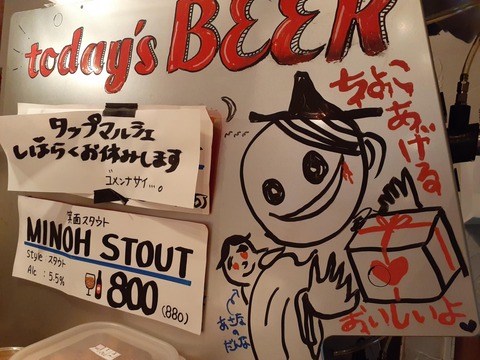 today's BEER
タップマルシェ
しばらくお休みします
ゴメンナサイ…。
実面スタウト
MINOH STOUT
style : スタウト
Alc : 5.5%
800
(880)
ちょこ
あげる
おいしいよ
あさなの
だんな